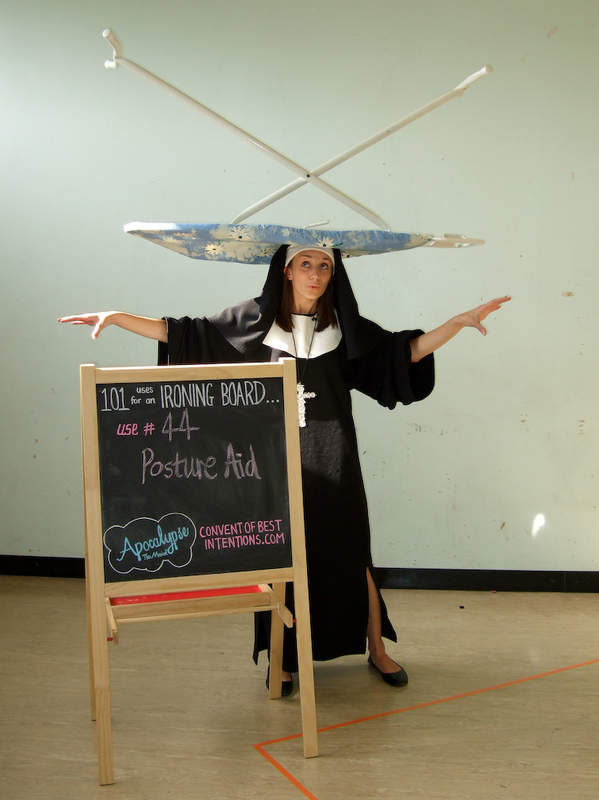 101 uses for an IRONING BOARD...
use # 44
Posture Aid
Apocalypse
The Musical
CONVENT OF BEST
INTENTIONS.COM